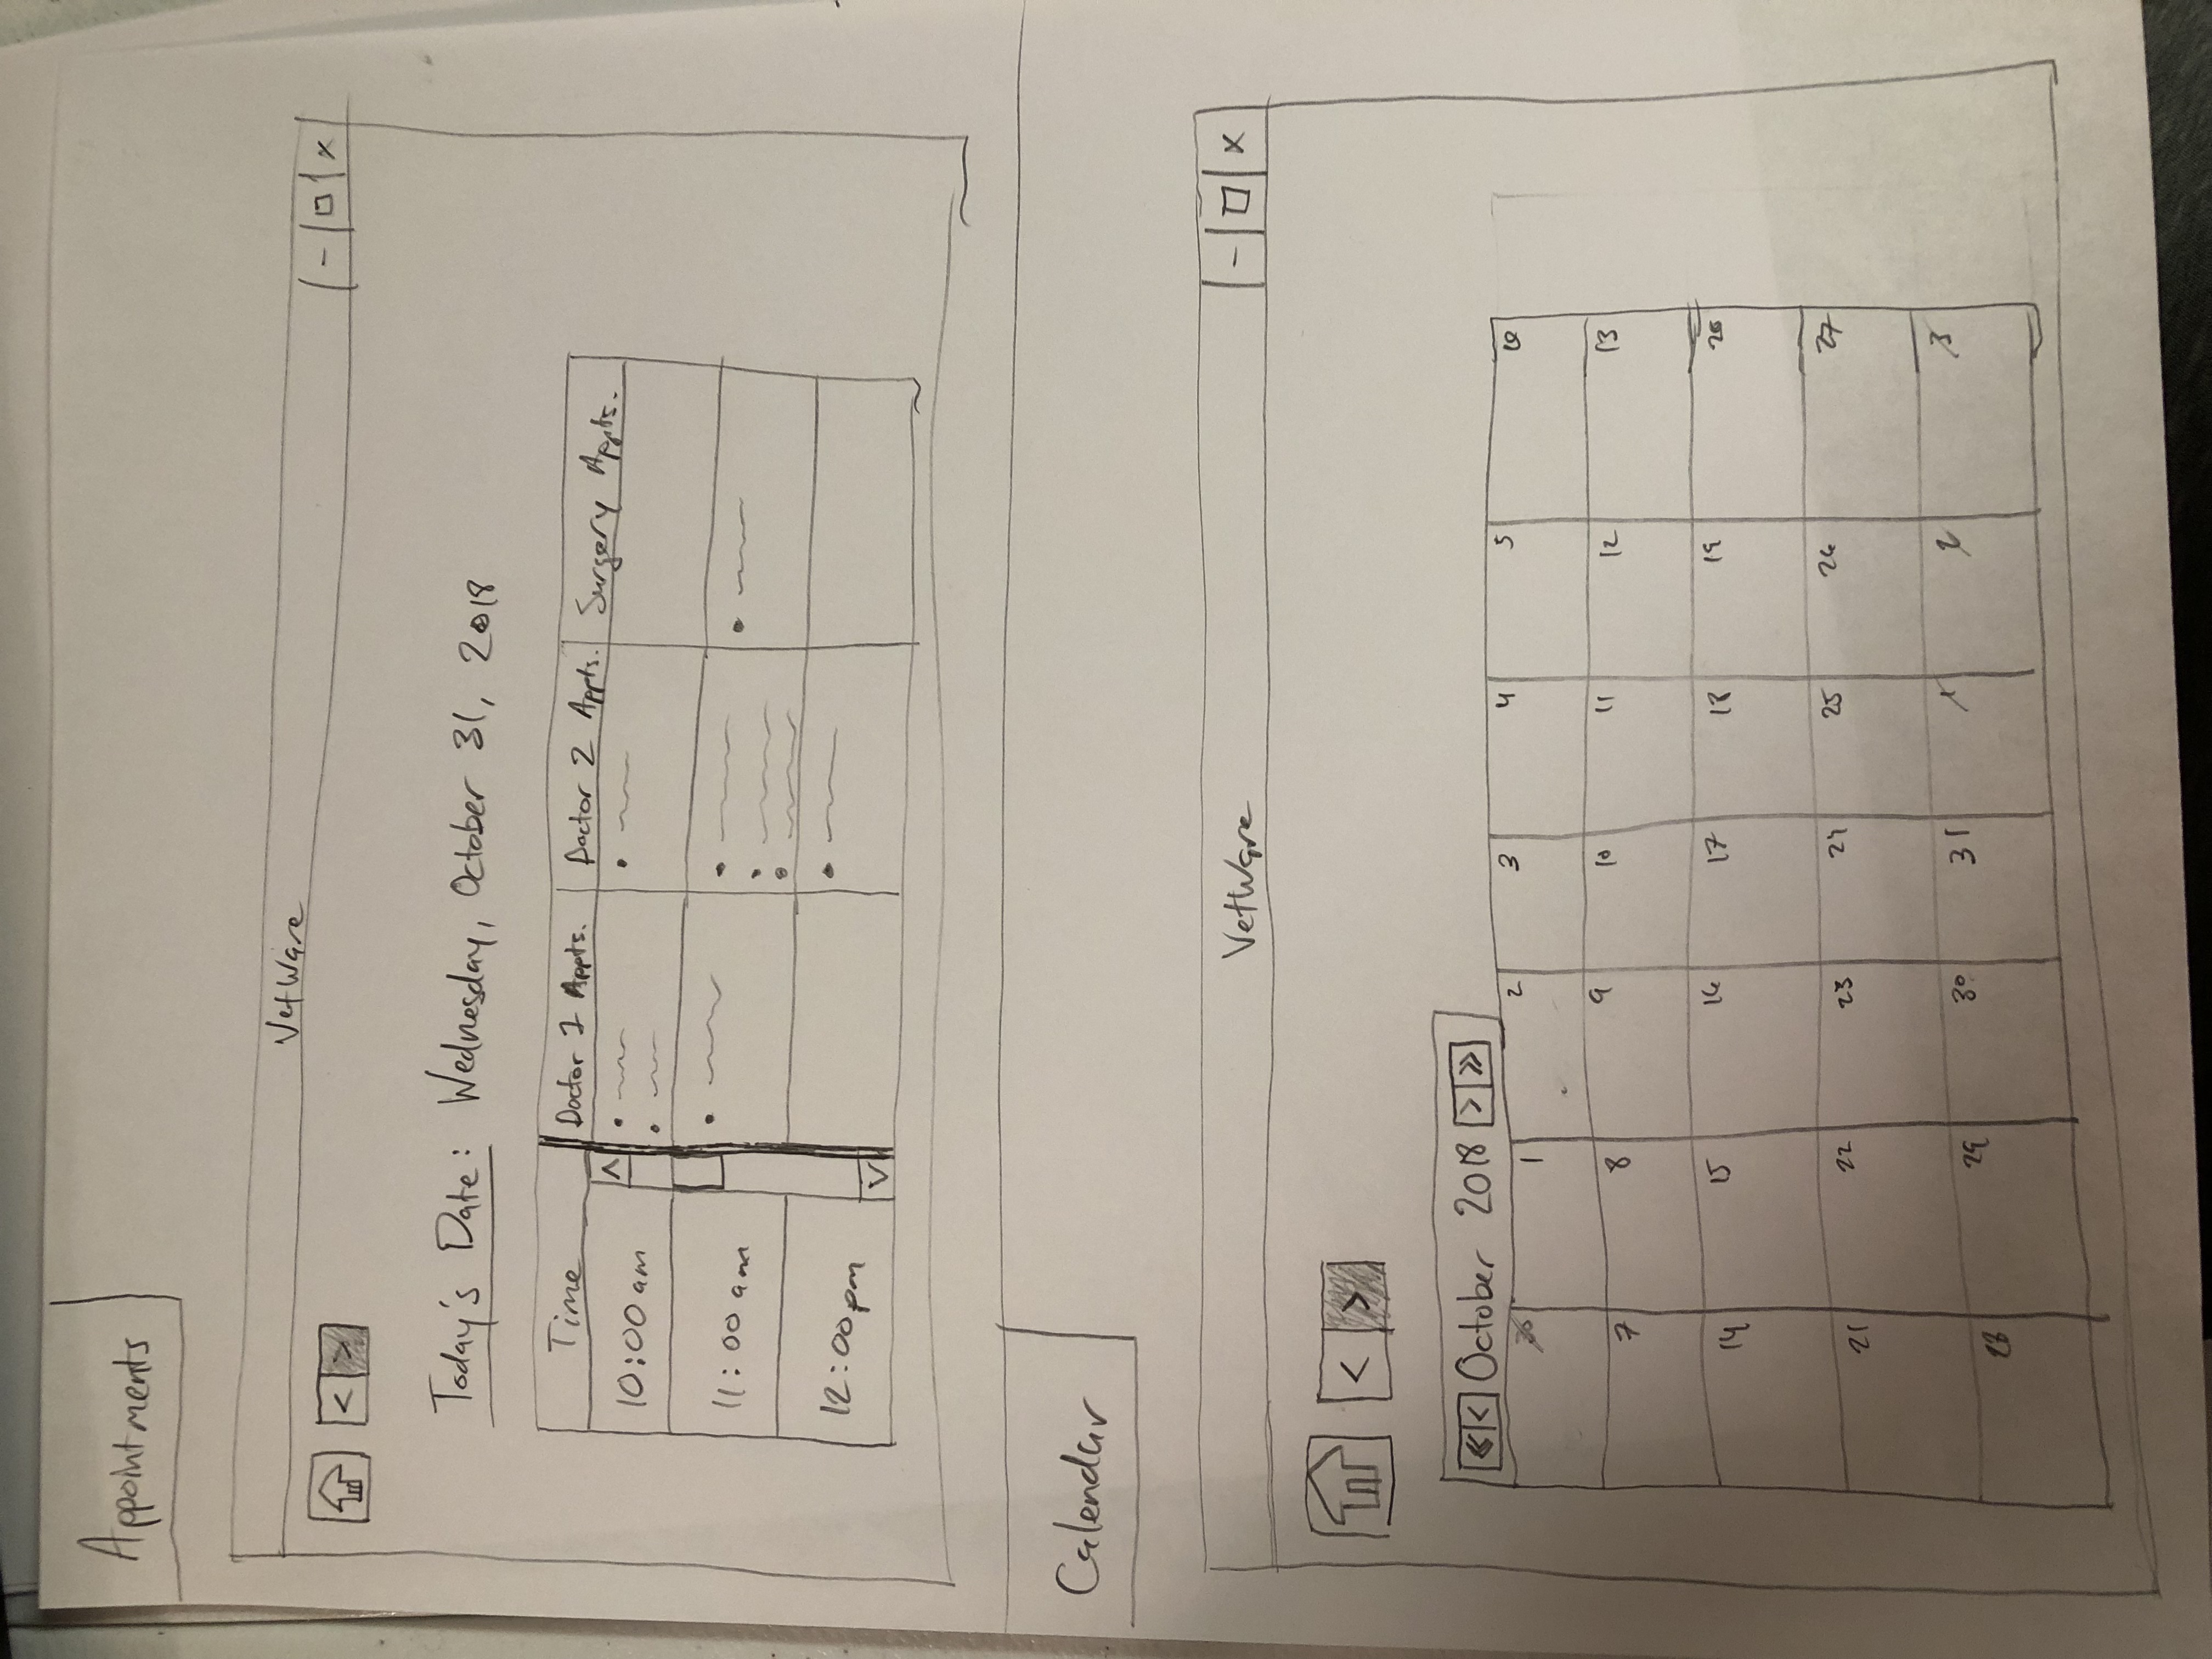 Appointments
VetWare
- □ x
< >
Today's Date: Wednesday, October 31, 2018
Time Doctor 1 Appts. Doctor 2 Appts. Surgery Appts.
10:00 am
11:00 am
12:00 pm
Calendar
VetWare
- □ x
< >
« < October 2018 > »
30 1 2 3 4 5 6
7 8 9 10 11 12 13
14 15 16 17 18 19 20
21 22 23 24 25 26 27
28 29 30 31 1 2 3